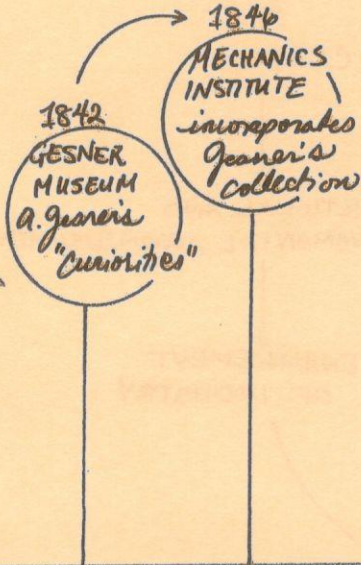 1842
GESNER
MUSEUM
A. Gesner's
"Curiosities"
1846
MECHANICS
INSTITUTE
incorporates
Gesner's
collection